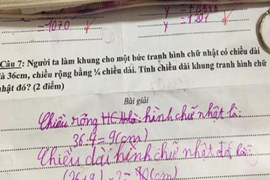 =1070
Câu 7: Người ta làm khung cho một bức tranh hình chữ nhật có chiều dài
là 36cm, chiều rộng bằng ¼ chiều dài. Tính chiều dài khung tranh hình chữ
nhật đó? (2 điểm)
Bài giải
Chiều rộng hình chữ nhật là:
36:4=9(cm)
Chiều dài hình chữ nhật đó là: